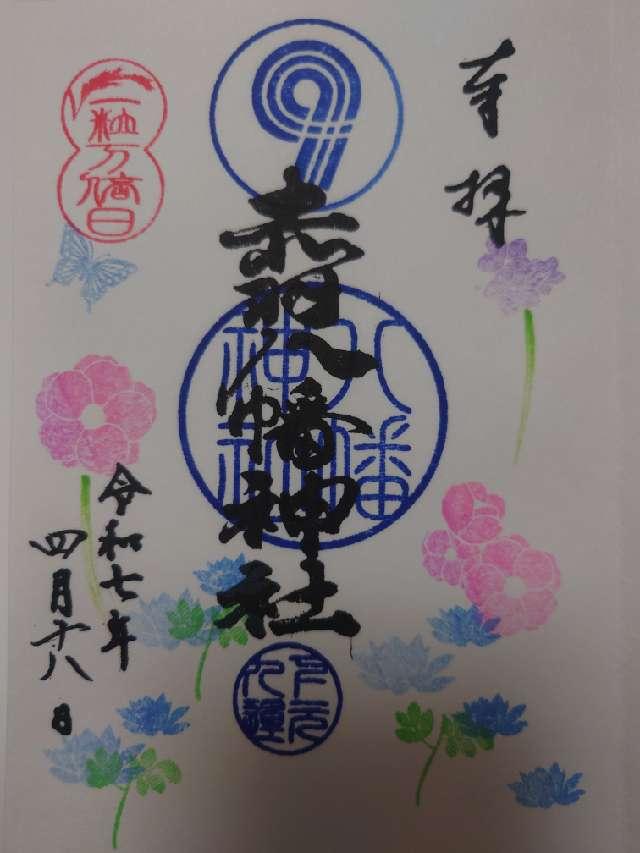 奉拝
赤羽八幡神社
八幡
神社
令和七年
四月十八日
一粒万倍日